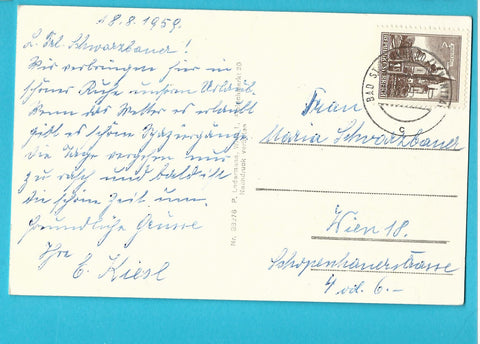 18.8.1959.
L. Frl. Schwarzbauer!
Wir verbringen hier in
schöner Ruhe unseren Urlaub.
Wenn das Wetter es erlaubt
gibt es schöne Spaziergänge
die Tage vergehen nur
zu rasch und bald ist
die schöne Zeit um.
Freundliche Grüsse
Ihre
E. Kiesl
Nr. 83378 P. Ledermann, Wien
Nachdruck verboten
BAD ST.
Frau
Maria Schwarzbauer
Wien 18.
Schopenhauerstrasse
4 od. 6.-